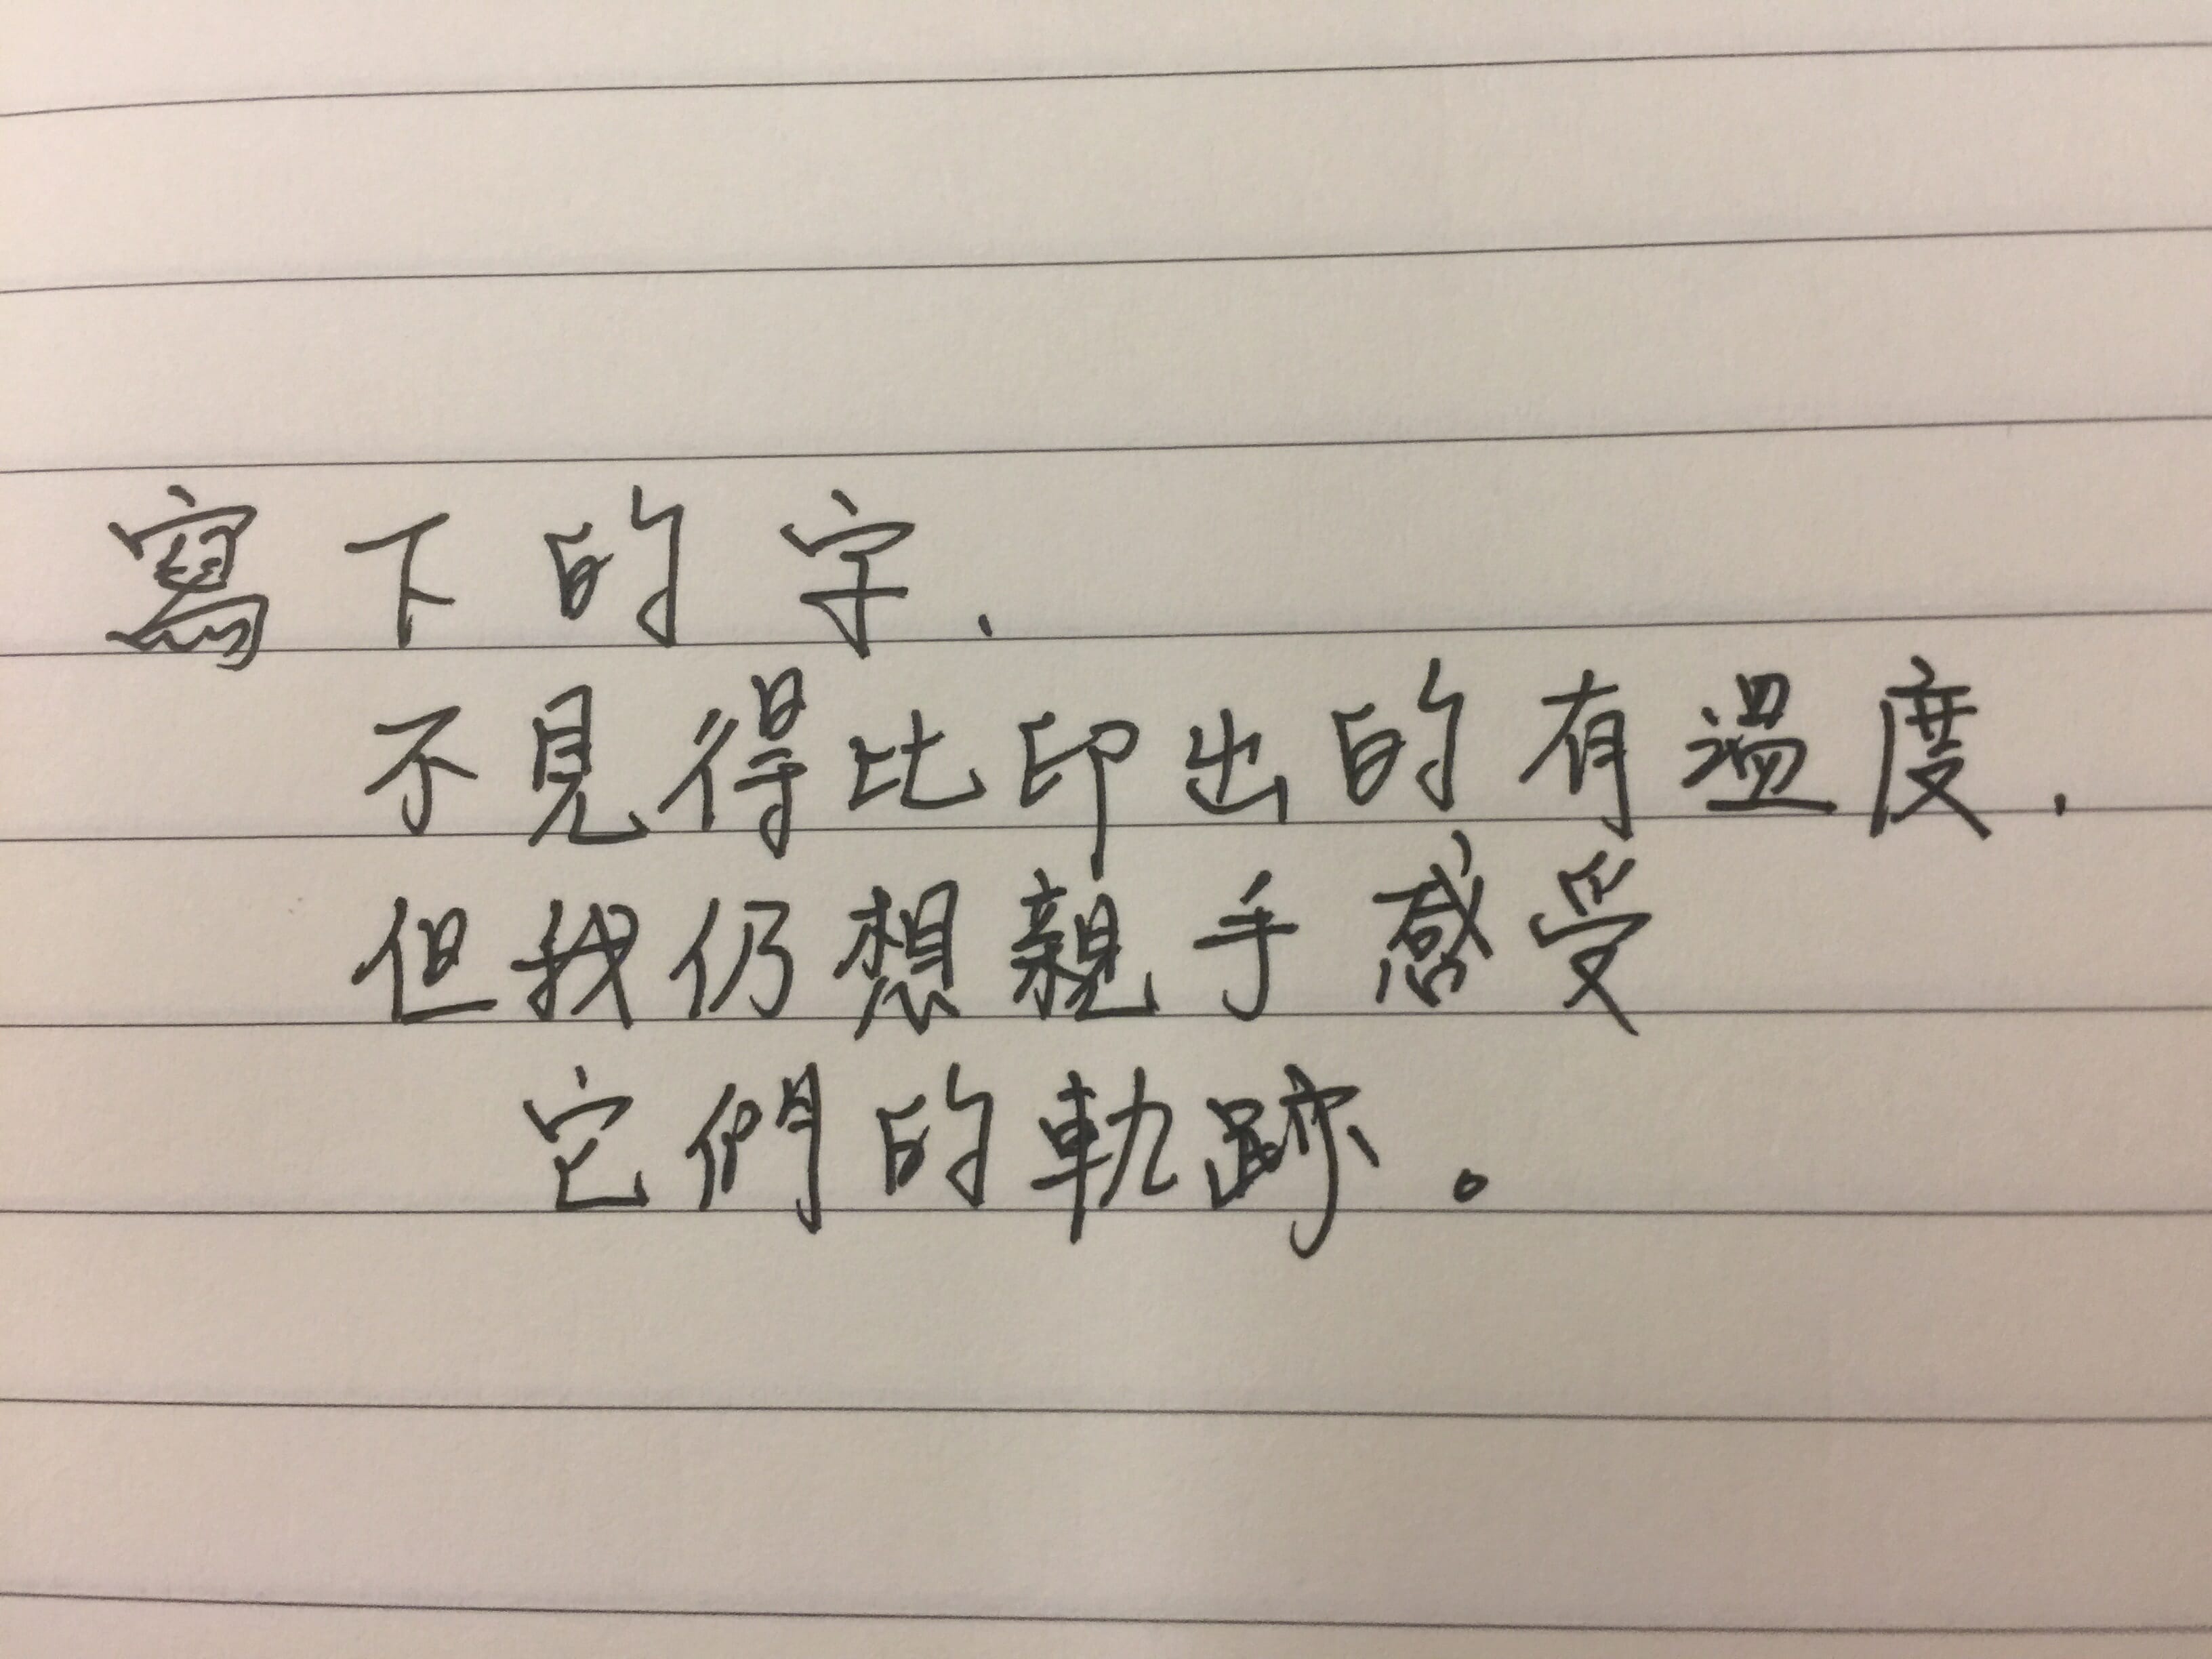 寫下的字，
不見得比印出的有溫度，
但我仍想親手感受
它們的軌跡。